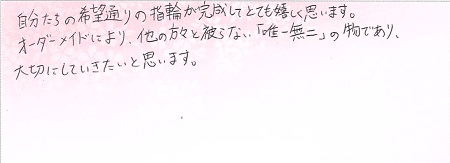 自分たちの希望通りの指輪が完成してとても嬉しく思います。
オーダーメイドにより、他の方々と被らない「唯一無二」の物であり、
大切にしていきたいと思います。